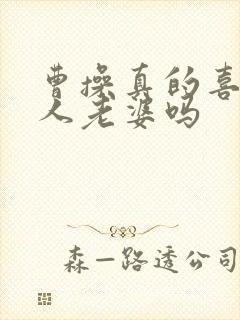 曹操真的喜
人老婆吗
森—路透公司